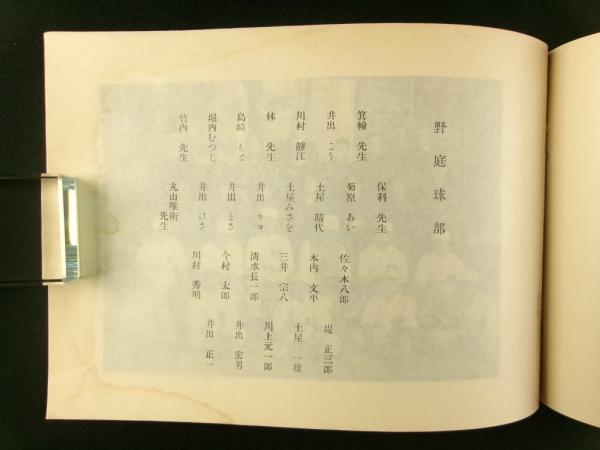 野庭球部
箕輪 先生
井出 こう
川村 靜江
林 先生
島崎 もと
堀内むつじ
竹内 先生
保科 先生
菊原 あい
土屋 晴代
土屋みさを
井出 キヨ
井出 とさ
井出 けさ
丸山唯衛先生
佐々木八郎
木内 文平
三井 宗八
清水長一郎
今村 太郎
川村 秀明
堤 正三郎
土屋 一雄
川上元一郎
井出 宏男
井出 正一